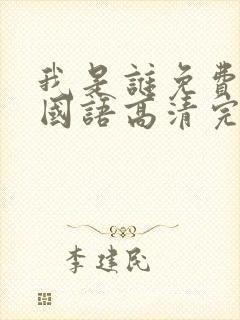 我是謎免費
國語高清完
李建民